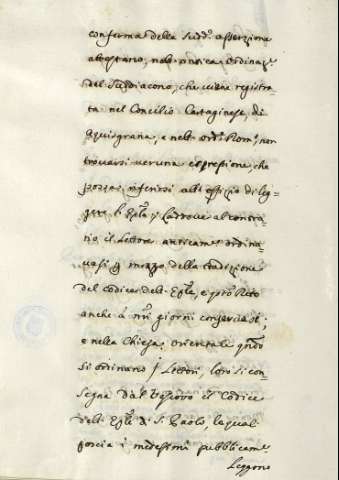 conferma della sudd.ª asserzione
attestano, nell'antica ordinaz.ᵉ
del Suddiacono, che viene registra-
ta nel Concilio Cartaginese, di
Aquisgrana, e nell' ord: Rom:, non
trovarsi veruna espressione, che
possa riferirsi all' offizio di leg-
gere l' Epla, Laddove al contra-
rio il Lettore anticamᵉ ordina-
vasi p mezzo della tradizione
del codice dell' Eple, e
anche à nri giorni conservasi;
e nella Chiesa orientale qndo
si ordinano i Lettori, loro si con-
segna dal Vescovo il Codice
dell' Eple di S. Paolo, la qual
poscia i medesimi pubblicamᵉ
Leggono